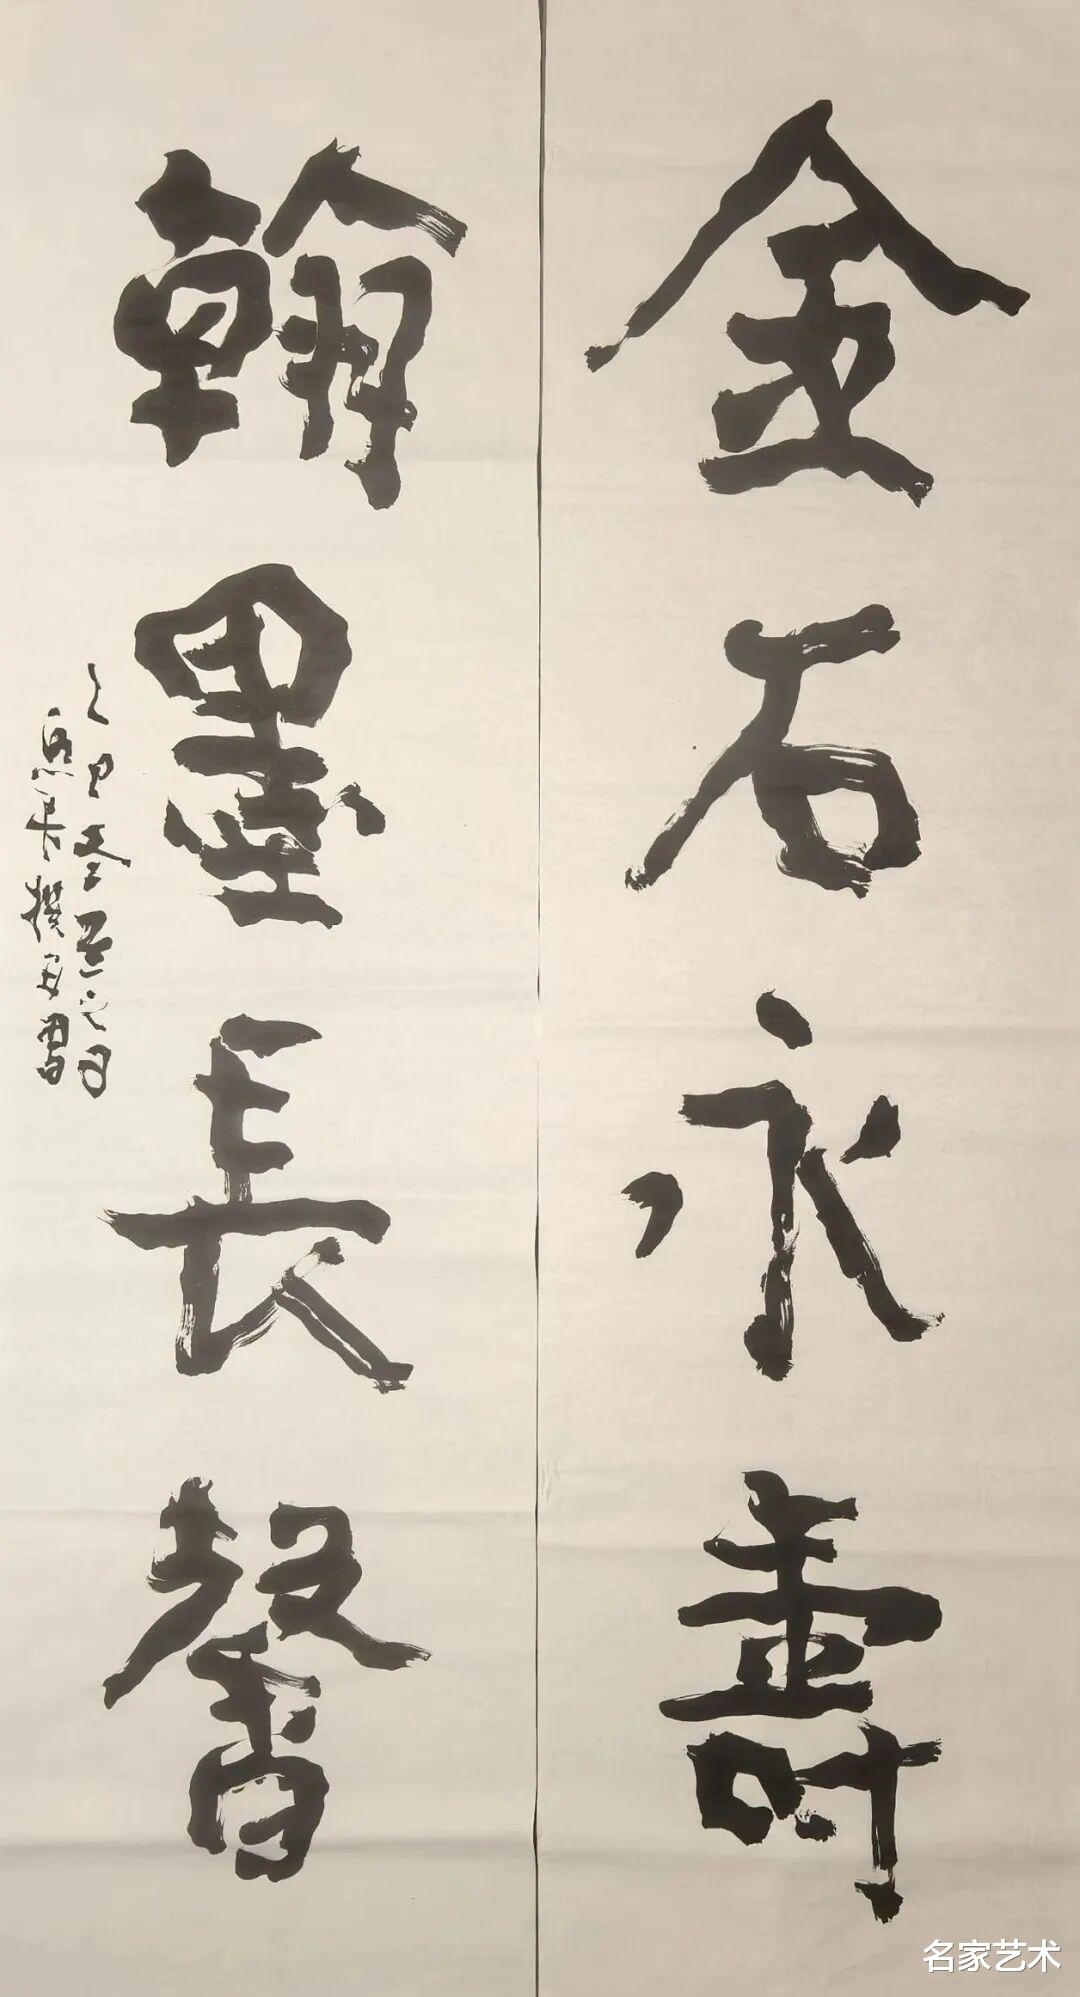 金石永壽
翰墨長馨
乙巳冬至之日
長撰書
名家艺术